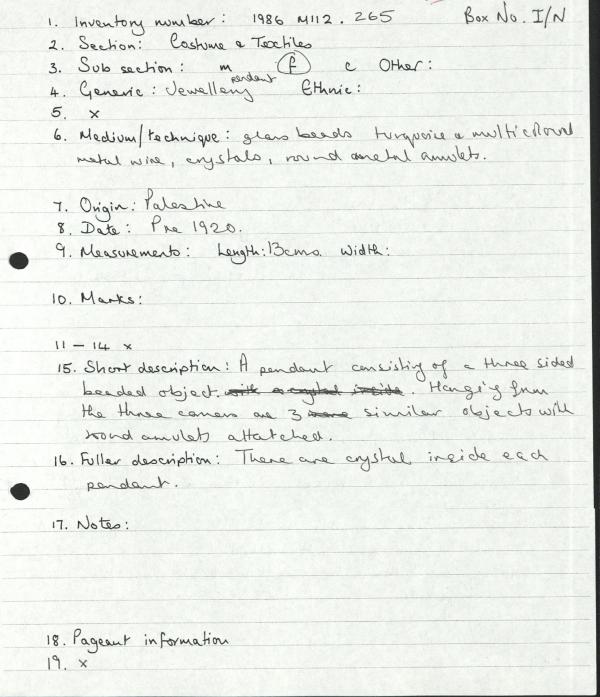 1. Inventory number: 1986 M112. 265 Box No. I/N
2. Section: Costume & Textiles
3. Sub section: m f c Other:
pendant
4. Generic: Jewellery Ethnic:
5. x
6. Medium/technique: glass beads turquoise & multicoloured
metal wire, crystals, round metal amulets.
7. Origin: Palestine
8. Date: Pre 1920.
9. Measurements: Length: 13cms. Width:
10. Marks:
11 - 14 x
15. Short description: A pendant consisting of a three sided
beaded object. with a crystal inside. Hanging from
the three corners are 3 more similar objects with
round amulets attatched.
16. Fuller description: There are crystal inside each
pendant.
17. Notes:
18. Pageant information
19. x